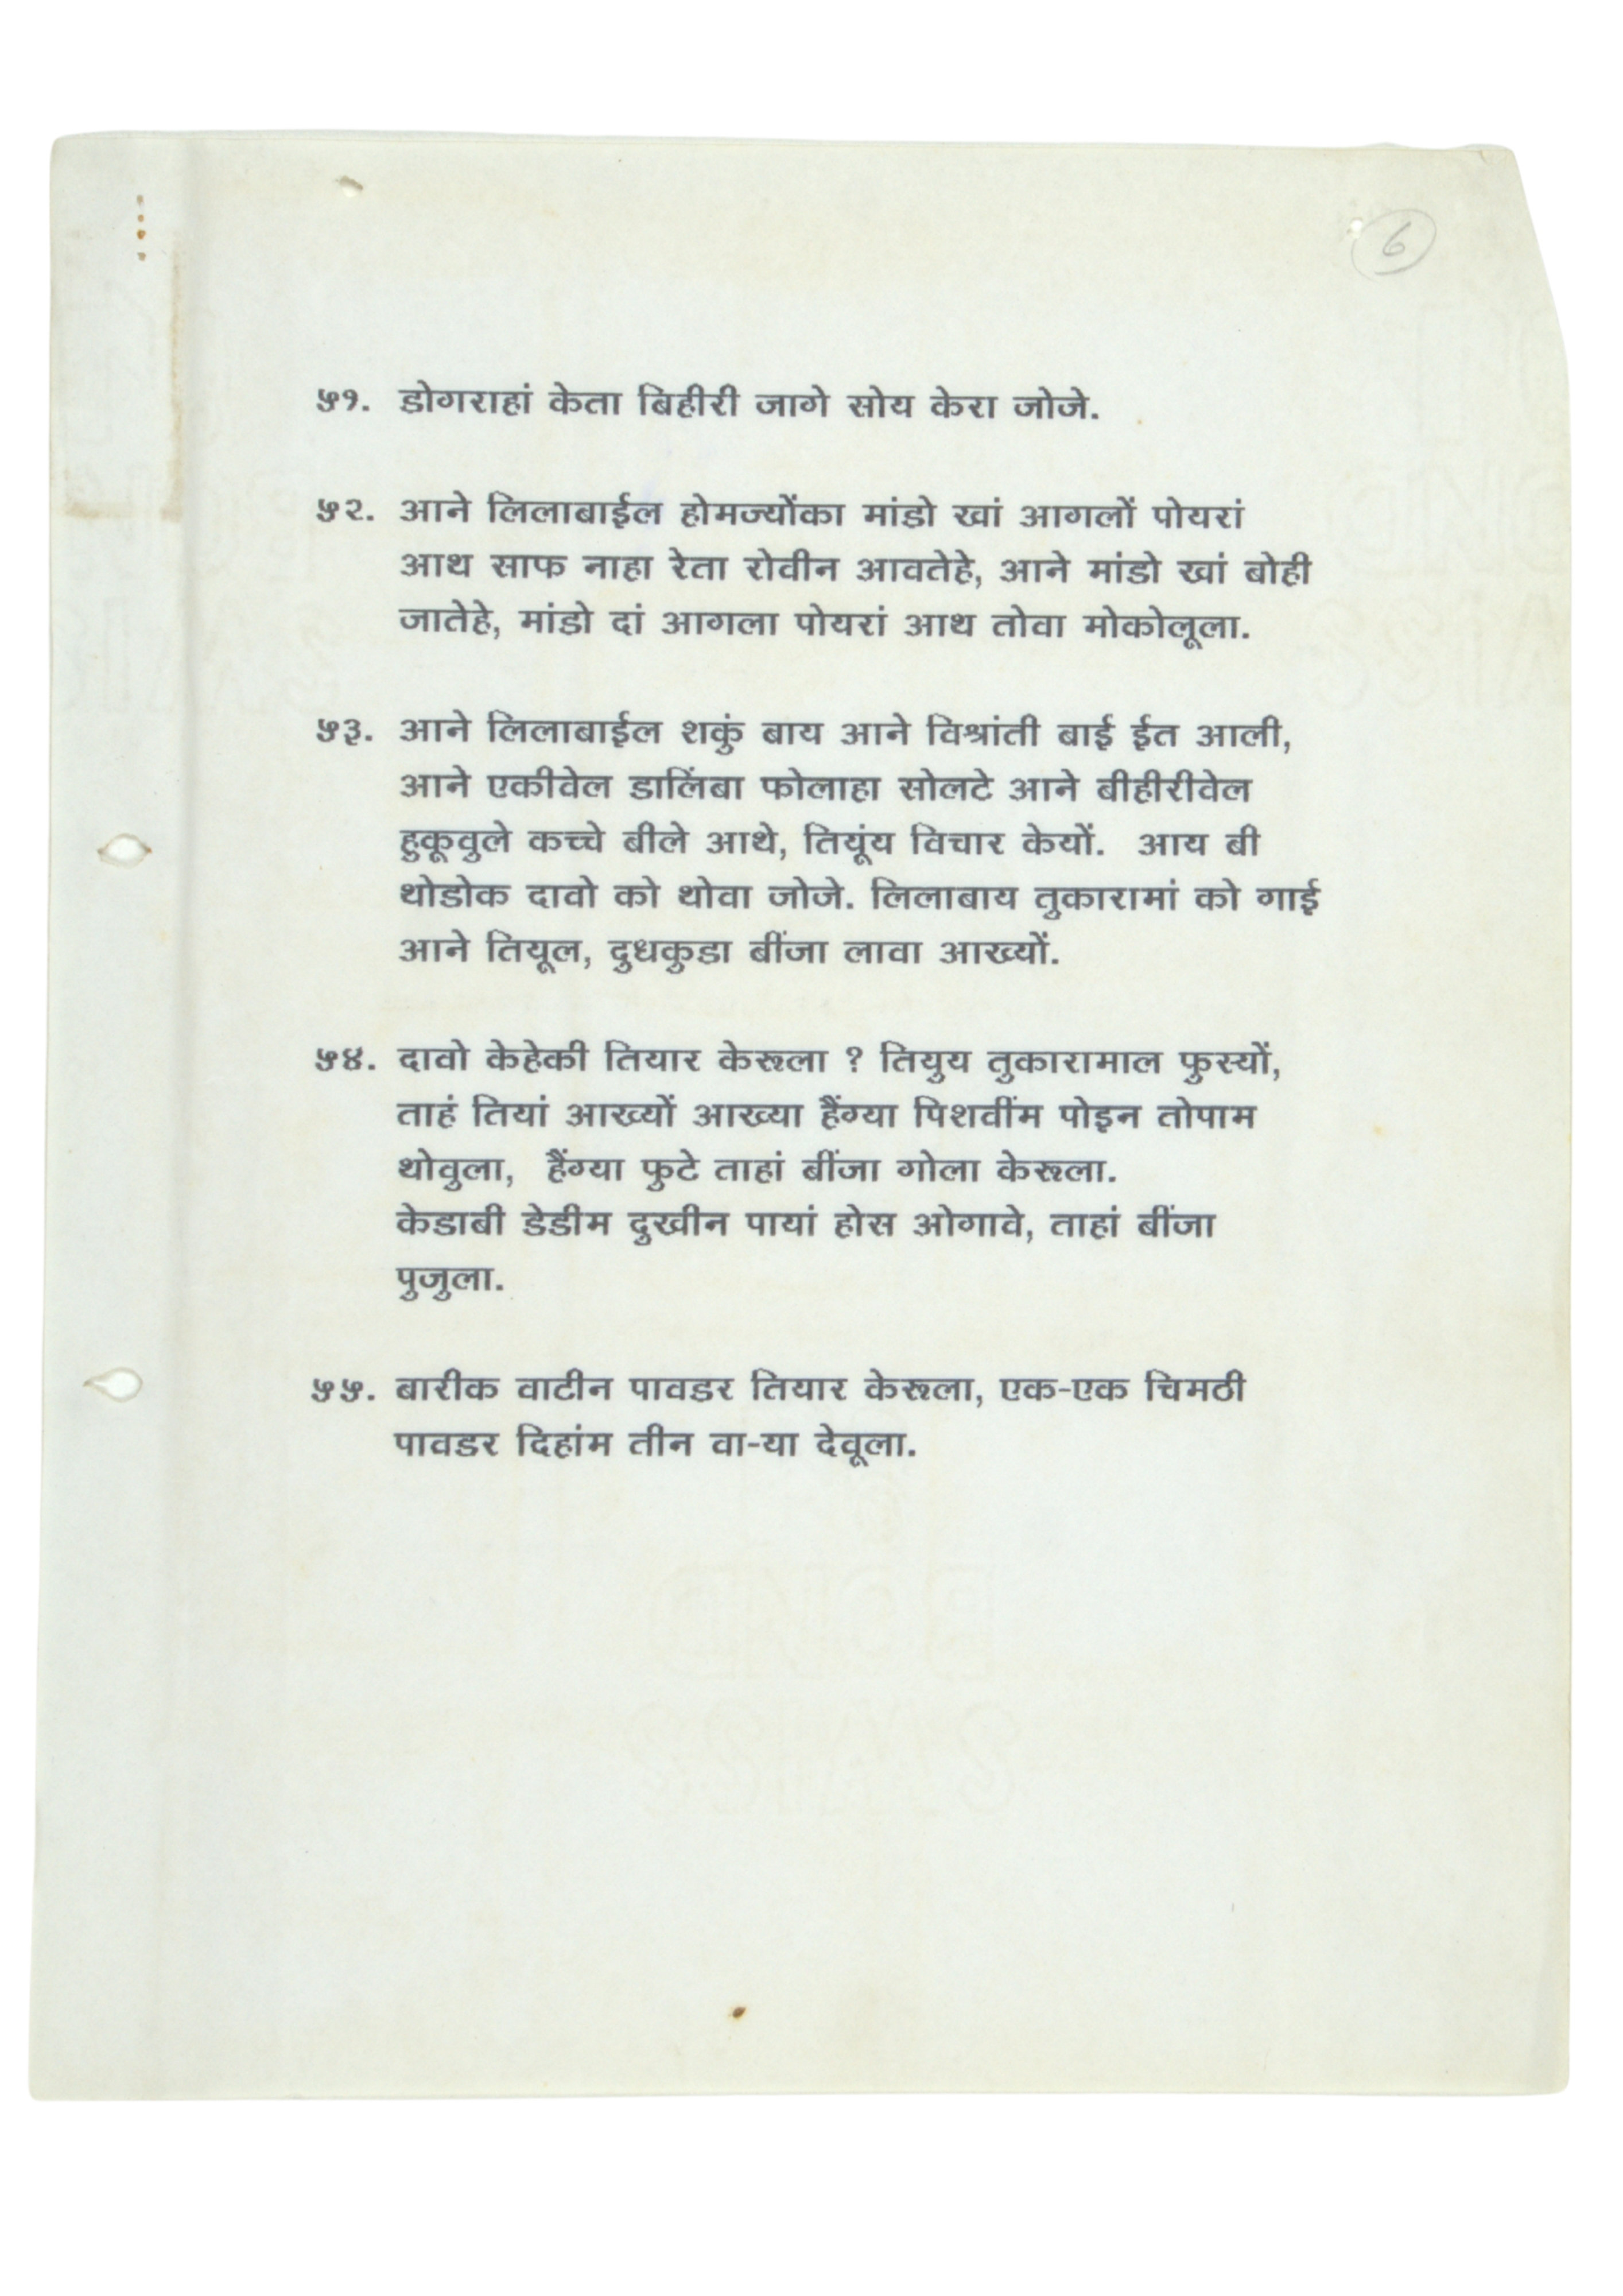 6
५१. डोगराहां केता बिहीरी जागे सोय केरा जोजे.
५२. आने लिलाबाईल होमज्योंका मांडो खां आगलों पोयरां
आथ साफ नाहा रेता रोवीन आवतेहे, आने मांडो खां बोही
जातेहे, मांडो दां आगला पोयरां आथ तोवा मोकोलूला.
५३. आने लिलाबाईल शकुं बाय आने विश्रांती बाई ईत आली,
आने एकीवेल डालिंबा फोलाहा सोलटे आने बीहीरीवेल
हुकूवुले कच्चे बीले आथे, तियूंय विचार केयों. आय बी
थोडोक दावो को थोवा जोजे. लिलाबाय तुकारामां को गाई
आने तियूल, दुधकुडा बींजा लावा आख्यों.
५४. दावो केहेकी तियार केरूला ? तियुय तुकारामाल फुस्यों,
ताहं तियां आख्यों आख्या हैंग्या पिशवींम पोइन तोपाम
थोवुला, हैंग्या फुटे ताहां बींजा गोला केरूला.
केडाबी डेडीम दुखीन पायां होस ओगावे, ताहां बींजा
पुजुला.
५५. बारीक वाटीन पावडर तियार केरूला, एक-एक चिमठी
पावडर दिहांम तीन वा-या देवूला.